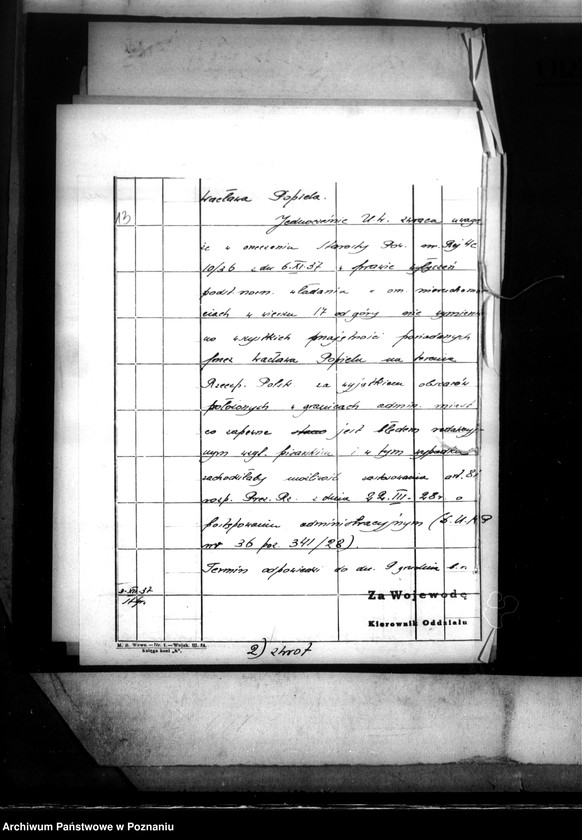 13
Wacława Popiela.
Jednocześnie U.W. zwraca uwagę
że w orzeczeniu Starosty Pow. om. Rój 4c
10/26 z dn 6.XI.37 w sprawie wyłączeń
podst norm. władania w om. nierucho
ciach w wierszu 17 od góry nie wymien
no wszystkich majętności posiadanych
przez Wacława Popiela na terenie
Rzeczp. Polsk za wyjątkiem obszarów
położonych w granicach admin. miast
co zapewne jest błędem redakcyj
nym wzgl. pisarskim i w tym wypadku
zachodziłaby możliwość zastosowania art. 81
rozp. Prez. Rz. z dnia 22.III.28 r. o
postępowaniu administracyjnym (D.U.R.P
nr 36 poz. 341/28).
Termin odpowiedzi do dn. 9 grudnia b.r.
3.XII.37
Za Wojewodę
Kierownik Oddziału
M. S. Wewn.—Nr. 1.—Wojsk. III. 34.
Księga koni „A".
2) zwrot
Archiwum Państwowe w Poznaniu